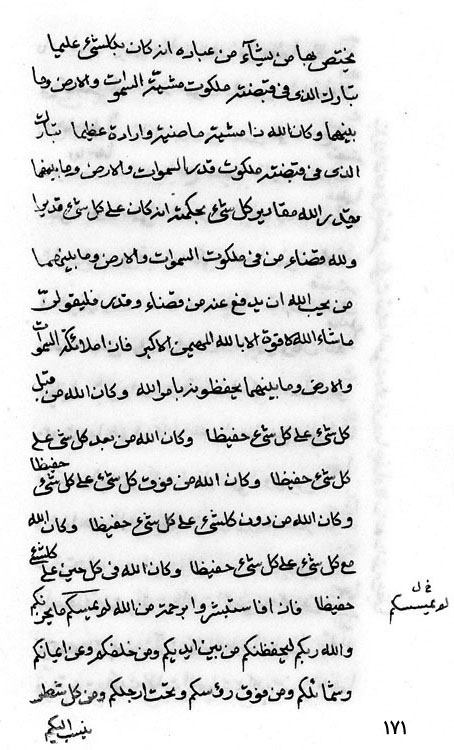 يختص بها من يشآء من عباده انه كان بكلشئ عليما
تبارك الذى فى قبضته ملكوت مشيته السموات والارض وما
بينهما وكان الله ذا مشية ماضية وارادة عظيما تبارك
الذى فى قبضته ملكوت قدر السموات والارض وما بينهما
يقدر الله مقادير كل شئ بحكمته انه كان على كل شئ قديرا
ولله قضاء من فى ملكوت السموات والارض وما بينهما
من يحب الله ان يدفع عنه من قضاء وقدر فليقولن
ماشاء الله لاقوة الا بالله المهيمن الاكبر فان املائكة السموات
والارض وما بينهما يحفظونه بامر الله وكان الله من قبل
كل شئ على كل شئ حفيظا وكان الله من بعد كل شئ على
كل شئ حفيظا وكان الله من فوق كل شئ على كل شئ حفيظا
وكان الله من دون كلشئ على كل شئ حفيظا وكان الله
مع كل شئ على كل شئ حفيظا وكان الله فى كل حين على كلشئ
حفيظا فان استبشروا برحمة من الله لم يمسسكم مايحزنكم
والله ربكم ليحفظنكم من بين ايديكم ومن خلفكم وعن ايمانكم
وشمائلكم ومن فوق رؤسكم وتحت ارجلكم ومن كل شطر
ينسب اليكم
لم يمسسكم
١٧١